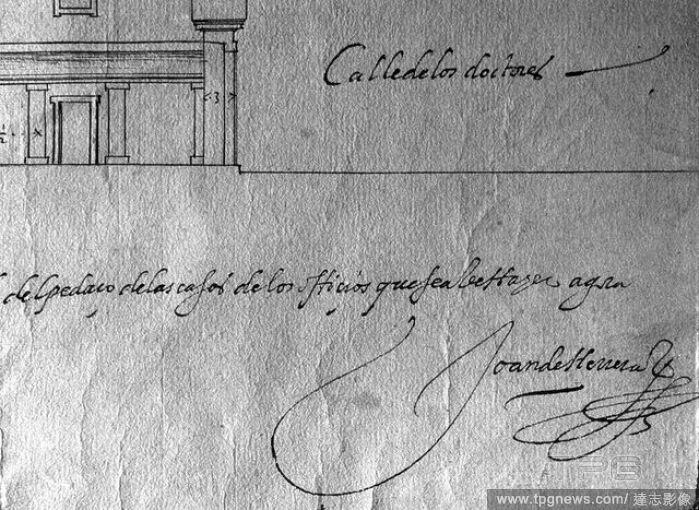 Calle de los doctores
<3>
del pedaço de las casas de los officios que se a de hazer agora
Joan de Herrera
www.tpgnews.com/ 達志影像